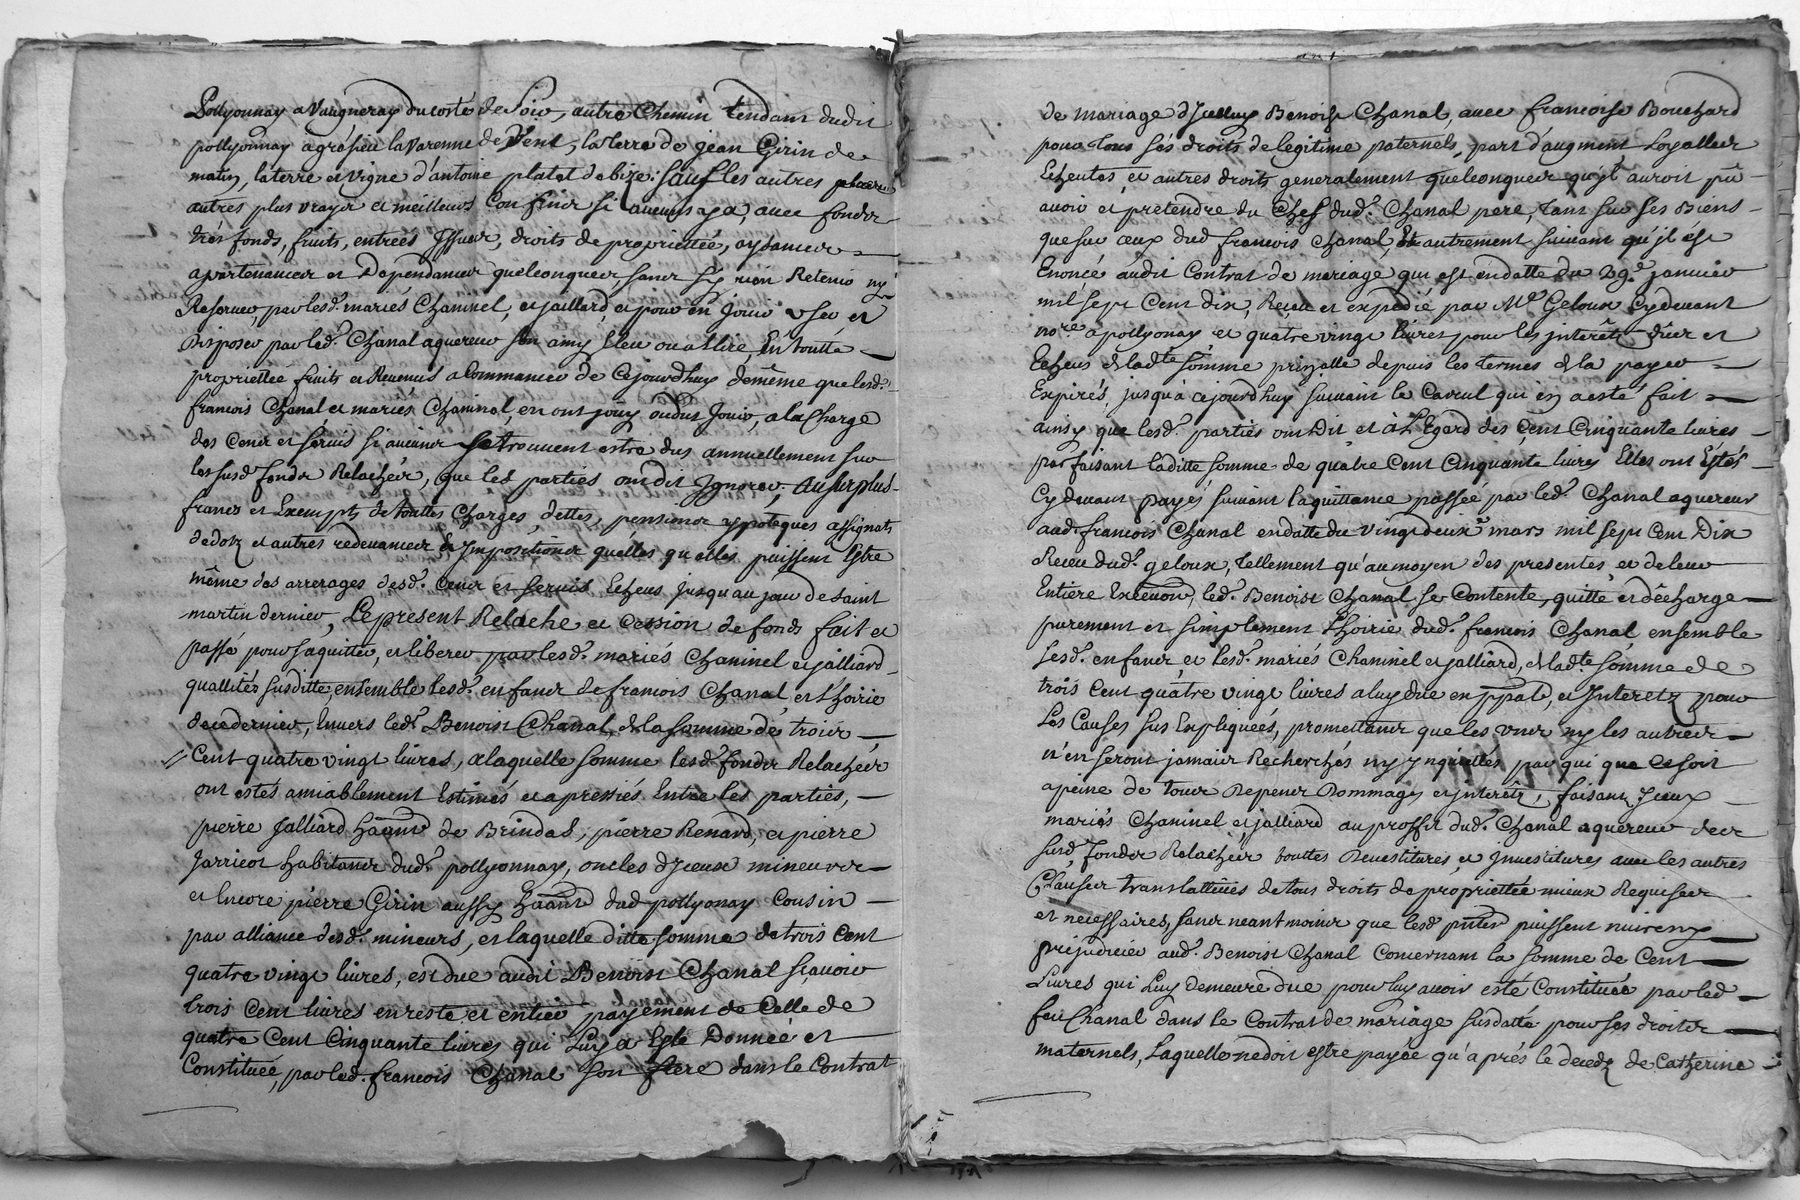 Pollyonnay a Vaugneray du costé de Soir, autre Chemin tendant dudit
pollyonnay a grésieu la Varenne de Vent, la terre de jean Girin de
matin, la terre et vigne d'antoine platet de bize: Sauf les autres
autres plus vrayes et meilleurs Confiner si aucuns y a, avec fonder
très fonds, fruits, entrées Issuer, droits de propriettée, aysancer
apartenancer et Dependancer quelconquer, sancr rien Retenir ny
Reserver, par lesd. mariés Chaninel, et jaillard, et pour en Jouir user et
Disposer par led. Chanal aquereur son amy Eleu ou a Elire, En toutte
propriettée fruits et Revenus a Commancer de Cejourdhuy de même que lesd.
francois Chanal et mariés Chaninel, en ont jouy ou dus Jouir, a la Charge
des Cencr et servis si aucuner se trouvent estre dus annuellement sur
les susd fonder Relacheér, que les parties ont dit Ignorer, Au surplus
francr et Exempts de touttes Charges, dettes, pensioncr ypoteques assignats
dedotz et autres redevancer et Impositioncr quelles qu'elles puissent Estre
même des arrerages desd. Cencr et Servis Echeus jusqu'au jour de saint
martin dernier, Le present Relache et Cession de fonds fait et
passé pour s'aquitter, et liberer par lesd. mariés Chaninel et jalliard
quallités susditte, ensemble lesd. enfancr de francois Chanal, et l'hoirie
de ce dernier, Envers led. Benoist Chanal, de la somme de troier
Cent quatre vingt livres, a laquelle somme lesd. fonder Relacheér
ont estés amiablement Estimés et apressiés Entre les parties,
pierre Jalliard haant de Brindas, pierre Renard, et pierre
Jarricot habitancr dud. pollyonnay, oncles d'Jceux mineurer
et Encore pierre Girin aussy haant dud pollyonay Cousin
par alliance desd. mineurs, et laquelle ditte somme de trois Cent
quatre vingt livres, est due audit Benoist Chanal sçavoir
trois Cent livres en reste et entier payement de Celle de
quatre Cent Cinquante livres qui Luy a Esté Donnée et
Constituée, par led. francois Chanal son frere dans le Contrat
de mariage d'Jcelluy Benoist Chanal, avec francoise Bouchard
pour tous ses droits de legitime paternels, part d'augment Loyalleur
Echeutes, et autres droits generalement quelconquer qu'jl auroit pû
avoir et pretendre du Chef dud. Chanal pere, tant sur ses Biens
que sur ceux dud francois Chanal, Et autrement suivant qu'jl est
Enoncé audit Contrat de mariage, qui est en datte du janvier
mil sept Cent dix, Receu et expedié par Me. Geloux Cydevant
nore. a pollyonay et quatre vingt livres pour les jnterêts dûer et
Echeus de ladte somme prinpalle depuis les termes de la payer
Expirés, jusqu'a cejourdhuy suivant le Carcul qui en a esté fait
ainsy que lesd. parties ont Dit, et à L'Egard des Cent Cinquante livres
parfaisant laditte somme de quatre Cent Cinquante livres Elles ont Estés
Cydevant payés suivant la quittance passée par led. Chanal aquereur
aud. francois Chanal en datte du vingt deuxe. mars mil sept Cent Dix
Receu dud. geloux, Tellement qu'au moyen des presentes, et de leur
Entière Execuon, led. Benoist Chanal se Contente, quitte et décharge
purement et simplement L'hoirie dud. francois Chanal ensemble
sesd. enfancr et lesd. mariés Chaninel et jalliard, de ladte. somme de
trois Cent quatre vingt livres a luy due en ppal, et Jnteretz pour
Les Causes sus Expliquées, promettancr que les uncr ny les autrer
n'en seront jamair Recherchés ny jnquiettés par qui que ce soit
a peine de tour Depencr Dommages et jnterêts, faisant Jceux
mariés Chaninel et jalliard au proffit dud. Chanal aquereur decr
susd. fonder Relacheér touttes Devestitures, et Jnvestitures avec les autres
Clauser translattives de tous droits de propriettée mieux Requiser
et necessaires, sancr neantmoincr que lesd. puissent nuire ny
préjudicier aud. Benoist Chanal Concernant la somme de Cent
Livres qui Luy demeure due pour luy avoir esté Constituée par led
feu Chanal dans le Contrat de mariage susdatté pour ses droiter
maternels, Laquelle ne doit estre payée qu'après le decedz de Catherine